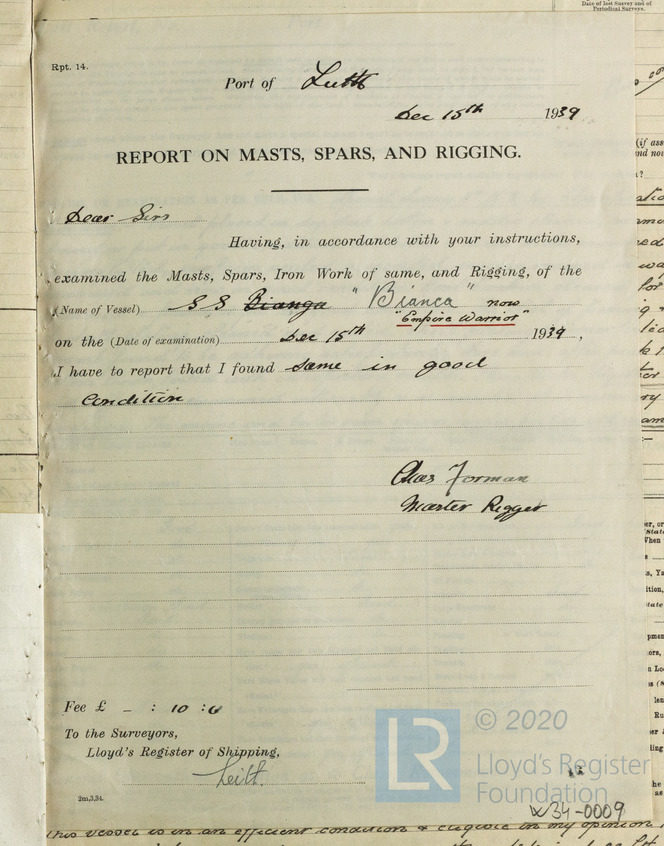 Date of last Survey and of
Periodical Surveys.
Rpt. 14.
Port of Leith
Dec 15th 1939
REPORT ON MASTS, SPARS, AND RIGGING.
Dear Sirs
Having, in accordance with your instructions,
examined the Masts, Spars, Iron Work of same, and Rigging, of the
(Name of Vessel) S S Bianga "Bianca" now
"Empire Warrior"
on the (Date of examination) Dec 15th 1939,
I have to report that I found same in good
Condition
Chas Forman
Master Rigger
Fee £ – : 10 : 6
To the Surveyors,
Lloyd's Register of Shipping,
Leith.
2m,3,34.
LR
© 2020
Lloyd's Register
Foundation
W34-0009
This vessel is in an efficient condition & eligible in my opinion